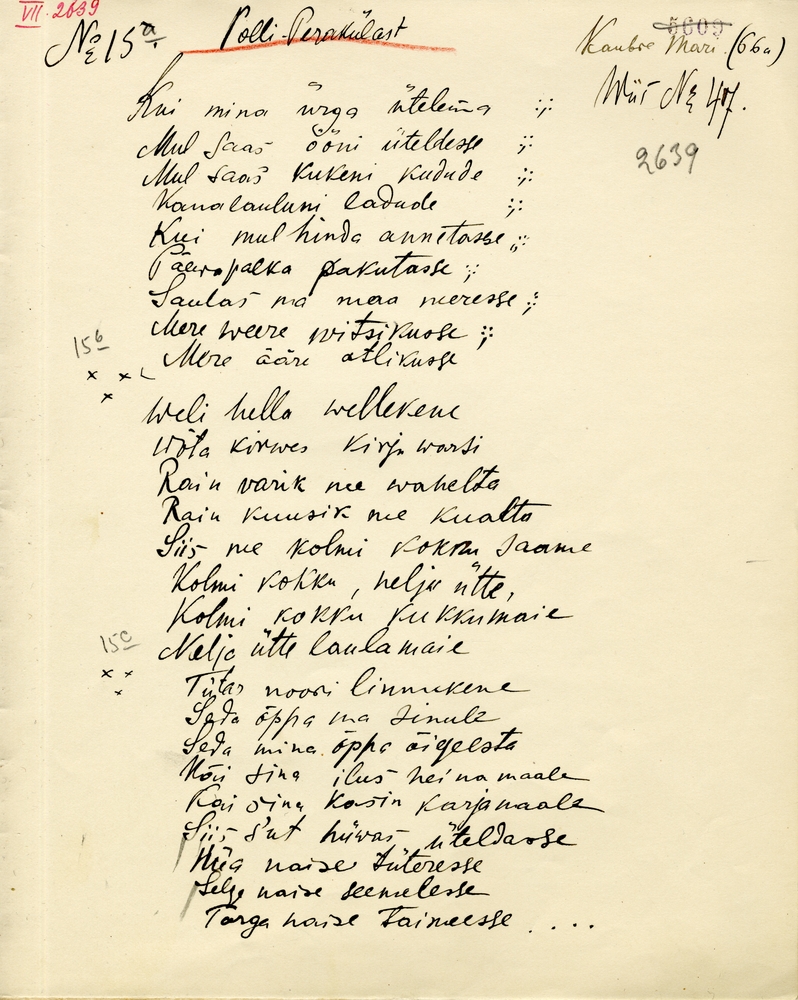 VII. 2639
№ 15ª
Polli-Peraküläst
5609
Kaubre Mari. (66a)
Wiis № 47.
2639
Kui mina ürga ütelema :;:
Mul saas ööni üteldesse :;:
Mul saas kukeni kudude :;:
Kanalauluni ladude :;:
Kui mul hinda annetasse :;:
Päewapalka pakutasse :;:
Laulas ma maa meresse :;:
Mere weere witsikusse :;:
15b
Mere ääre atlikusse
Weli hella wellekene
Wõta kirwes kirju warsi
Raiu varik me wahelta
Raiu kuusik me kualta
Siis me kolmi kokku saame
Kolmi kokku, nelja ütte,
Kolmi kokku kukkumaie
15c
Nelja ütte laulamaie
Tütar noori linnukene
Seda õppa ma sinule
Seda mina õppa õigelsta
Käi sina ilus heinamaale
Kai sina kasin karjamaale
Siis s'ut hüwas üteldasse
Hüa naise tüteresse
Selge naise seemelesse
Targa naise taimeesse ....